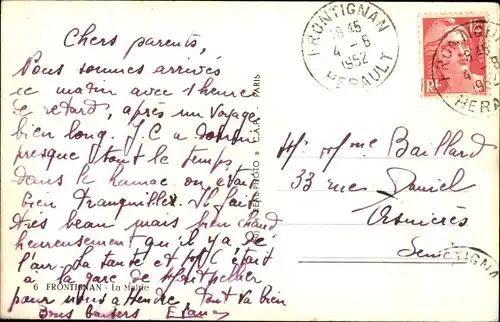 Chers parents,
Nous sommes arrivés
ce matin avec 1 heure
de retard, après un voyage
bien long. J.C a dormi
presque tout le temps
dans le hamac on était
bien tranquilles. Il fait
très beau mais bien chaud
heureusement qu'il y a de
l'air. La tante et J.C était
à la gare de Montpellier
pour nous attendre. Tout va bien
Bons baisers
6 FRONTIGNAN - La Mairie
C.A.P. - PARIS
FRONTIGNAN
18 45
4 - 8
1952
HERAULT
FRONTIGNAN
18 45
4 - 8
1952
HER
RF
Mr Mme Baillard
33 rue Daniel
Asnières
Seine
TIGNA